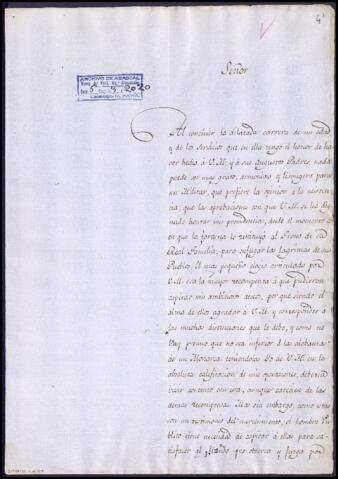 4
ARCHIVO DE ABASCAL
Señor
Al concluir la dilatada carrera de mi edad
y de los servicios que en ella tengo el honor de ha-
ver hecho á V.M. y á su Augusto Padre, nada
puede ser mas grato, armonioso y lisongero para
un Militar, que prefiere la opinion á la
que las aprobaciones con que V.M. se ha dig-
nado honrar mis providencias, desde el momento
en que la fortuna lo restituyó al Trono de su
Real Familia, para enjugar las lagrimas de sus
Pueblos. El mas pequeño elogio articulado por
V.M. era la mayor recompensa á que pudieron
aspirar mis ambiciosos deseos, por que siendo el
alma de ellos agradar á V.M. y corresponder á
las muchas distinciones que le debo, y como no
hay premio que no sea inferior á las alabanzas
de un Monarca teniendolas Yo de V.M. en la
absoluta calificacion de mis operaciones, deberia
vivir contento con esta, aunque careciese de las
demas recompensas. Mas sin embargo, como estas
son un testimonio del merecimiento, el hombre Pu-
blico tiene necesidad de aspirar á ellas para sa-
tisfacer al Mundo que observa y juzga por